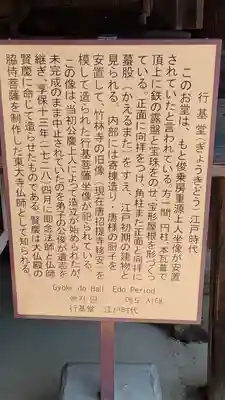 行基堂（ぎょうきどう）江戸時代
このお堂は、もと俊乗房重源上人坐像が安置
されていたと言われている。方一間、円柱、本瓦葺で
頂上に鉄の露盤と宝珠をのせ、宝形屋根を形づくっ
ている。正面に向拝をつけ、角柱また正面と向拝に
蟇股（かえるまた）をすえ、江戸初期の建物と
見られる。内部には春棟造り・唐様の厨子を
安置して、竹林寺の旧像（現在唐招提寺蔵安）を
模して造られた行基菩薩坐像が祀られている。
この像は、当初公慶上人によって造立が始められたが、
未完成のまま中止されていたのを弟子の公俊が遺志を
継ぎ、享保十三年（一七二八）四月に即念法師と仏師
賢慶に命じて造らせたものである。賢慶は大仏殿の
脇侍菩薩を制作した東大寺仏師として知られる。
Gyoki do Hall Edo Period
에도 시대
行基堂 江戸时代